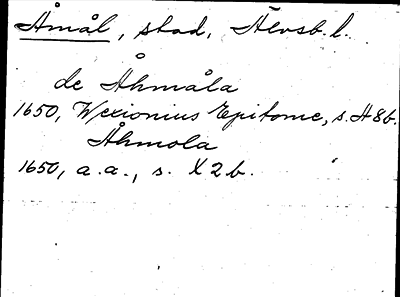 Åmål, stad, Älvsb. l.
de Åhmåla
1650, Wexionius Epitome, s. H8b.
Åhmola
1650, a.a., s. X2b.